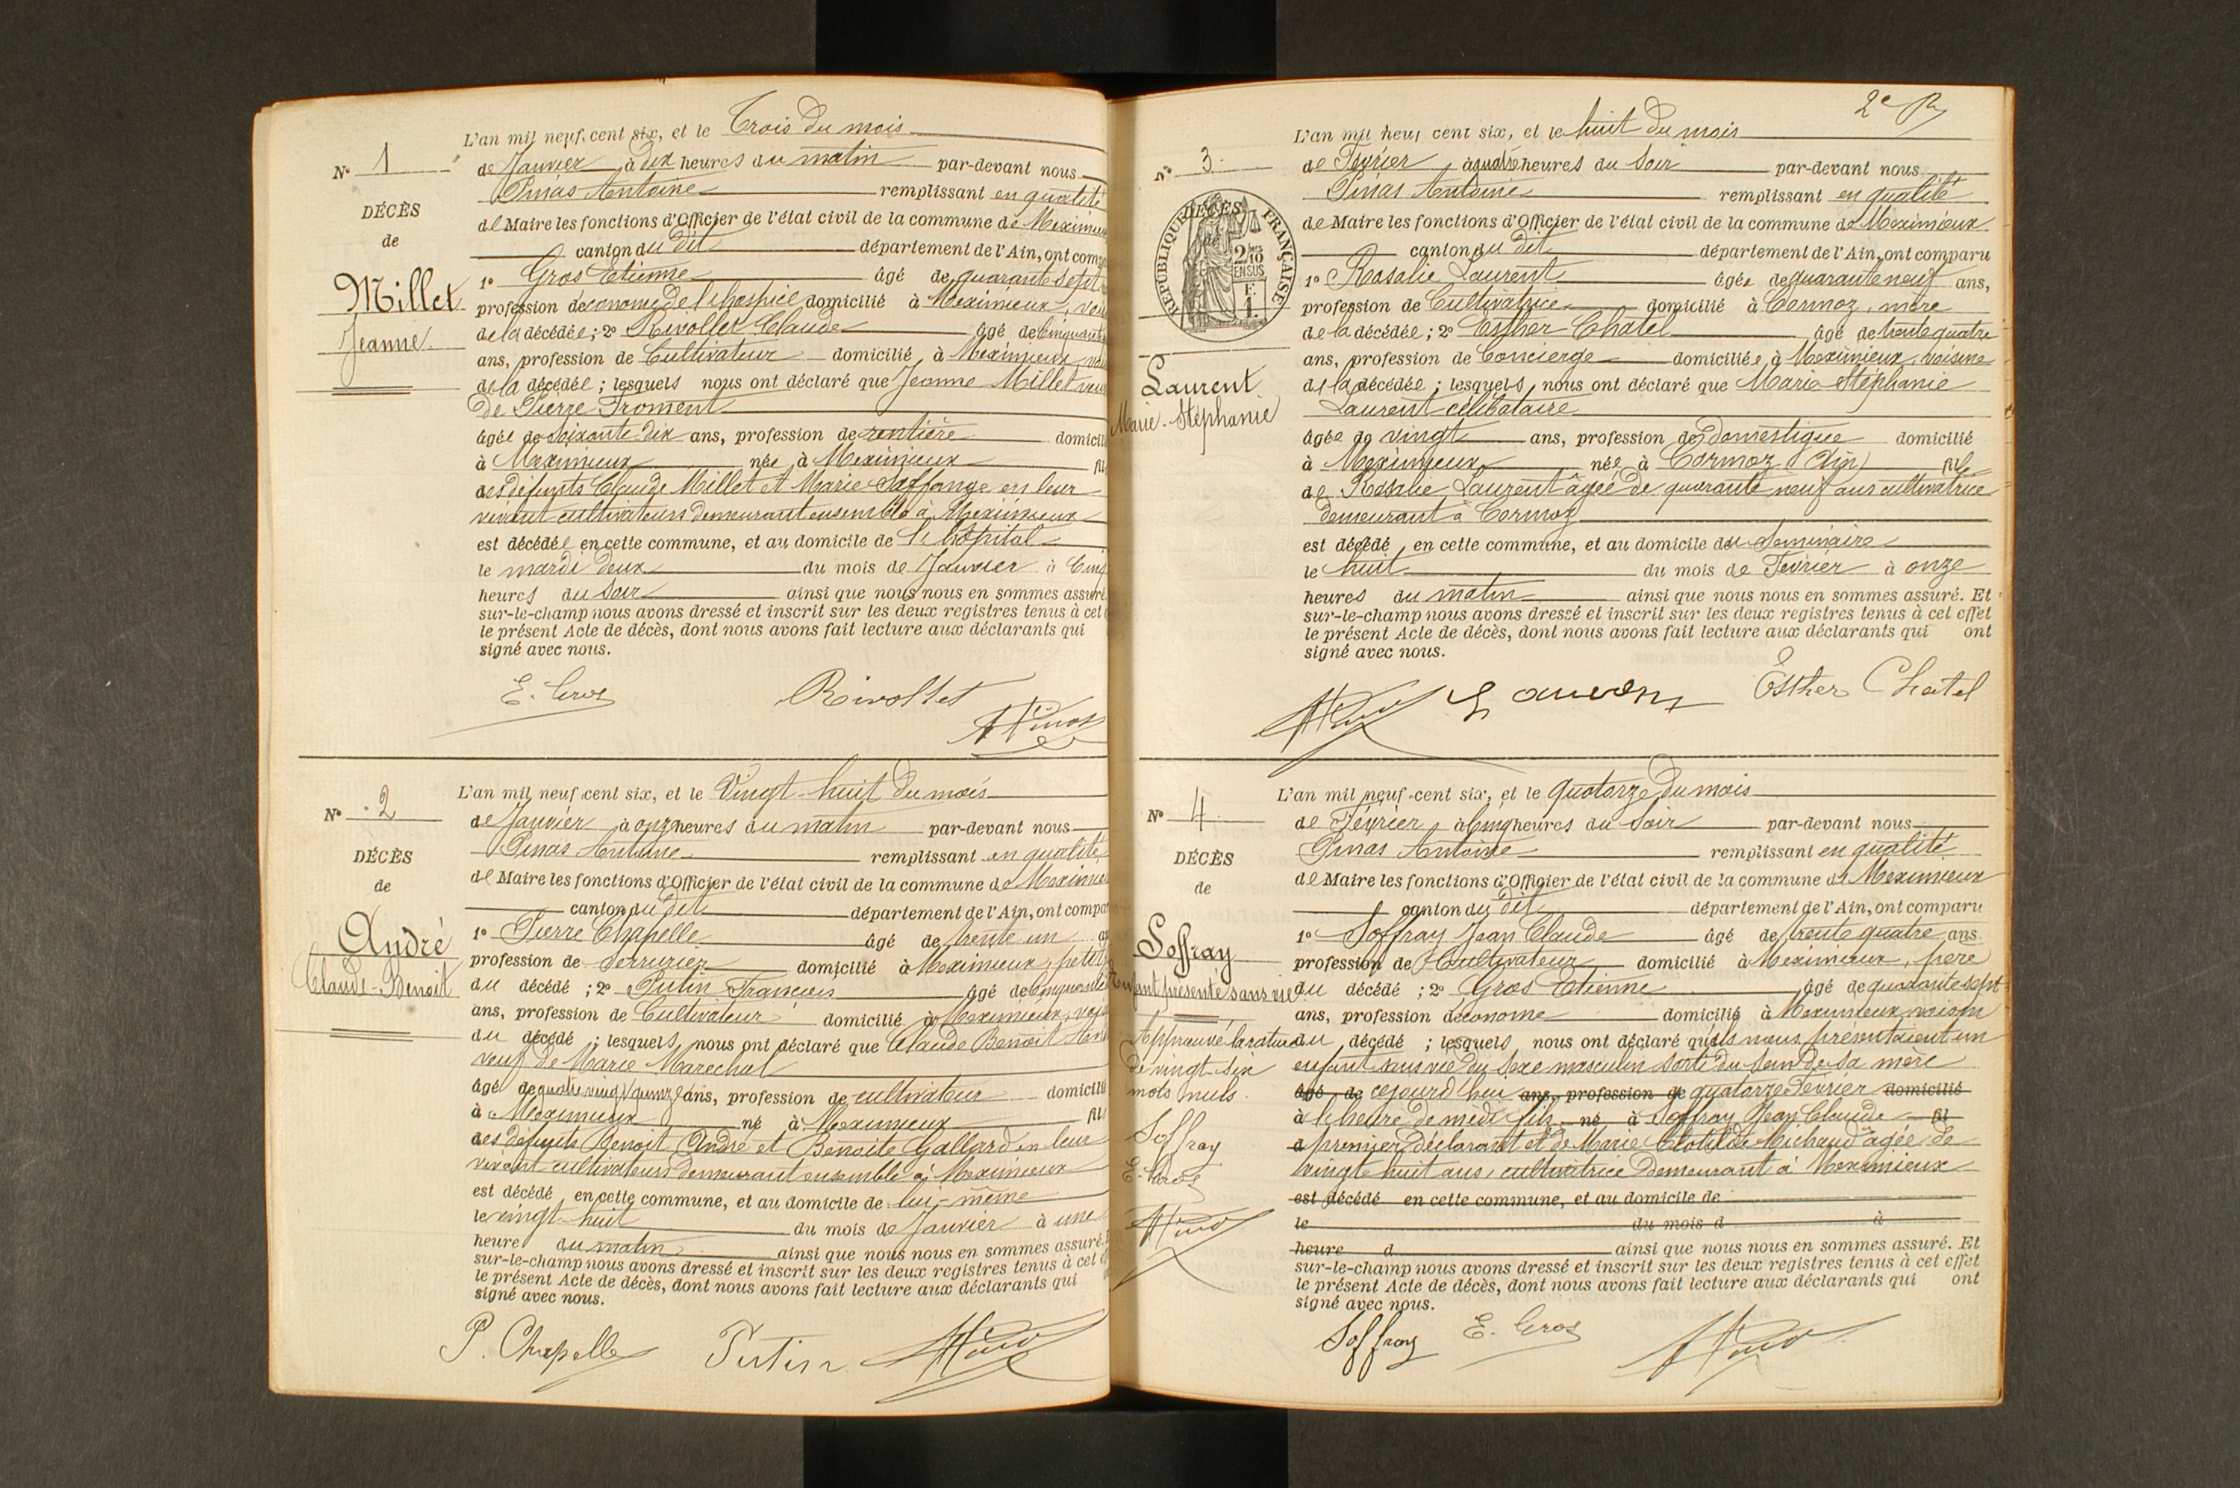 N° 1
DÉCÈS
de
Millet
Jeanne
L'an mil neuf cent six, et le Trois du mois
de Janvier à dix heures du matin par-devant nous
Pinas Antoine remplissant en qualité
de Maire les fonctions d'Officier de l'état civil de la commune de Meximieux
canton du dit département de l'Ain, ont comp
1° Gros Etienne âgé de quarante sept
profession de économe de l'hospice domicilié à Meximieux,
de la décédée ; 2° Rivollet Claude âgé de cinquante
ans, profession de Cultivateur domicilié à Meximieux,
de la décédée ; lesquels nous ont déclaré que Jeanne Millet veuve
de Pierre Froment
âgée de soixante-dix ans, profession de rentière domicil
à Meximieux née à Meximieux fil
des défunts Claude Millet et Marie en leur
vivant cultivateurs demeurant ensemble à Meximieux
est décédée en cette commune, et au domicile de l'hôpital
le mardi deux du mois de Janvier à Cinq
heures du soir ainsi que nous nous en sommes assuré
sur-le-champ nous avons dressé et inscrit sur les deux registres tenus à cet
le présent Acte de décès, dont nous avons fait lecture aux déclarants qui
signé avec nous.
E. Gros Rivollet
N° 2
DÉCÈS
de
André
Claude-Benoit
L'an mil neuf cent six, et le Vingt-huit du mois
de Janvier à onze heures du matin par-devant nous
Pinas Antoine remplissant en qualité
de Maire les fonctions d'Officier de l'état civil de la commune de Meximieux
canton du dit département de l'Ain, ont compa
1° Pierre Chapelle âgé de trente un
profession de Serrurier domicilié à Meximieux, petit
du décédé ; 2° Putin François âgé de cinquante
ans, profession de Cultivateur domicilié à Meximieux, vois
du décédé ; lesquels nous ont déclaré que Claude Benoit
veuf de Marie Marechal
âgé de quatre vingt quinze ans, profession de cultivateur domicilié
à Meximieux né à Meximieux fil
des défunts Benoit André et Benoite Gallard en leur
vivant cultivateurs demeurant ensemble à Meximieux
est décédé en cette commune, et au domicile de lui-même
le vingt-huit du mois de Janvier à une
heure du matin ainsi que nous nous en sommes assuré.
sur-le-champ nous avons dressé et inscrit sur les deux registres tenus à cet
le présent Acte de décès, dont nous avons fait lecture aux déclarants qui
signé avec nous.
P. Chapelle Putin
2e
N° 3
RÉPUBLIQUE FRANÇAISE
DÉCÈS
de
2/10
EN SUS
Laurent
Marie-Stéphanie
L'an mil neuf cent six, et le huit du mois
de Février à quatre heures du soir par-devant nous
Pinas Antoine remplissant en qualité
de Maire les fonctions d'Officier de l'état civil de la commune de Meximieux
canton du dit département de l'Ain, ont comparu
1° Rosalie Laurent âgée de quarante neuf ans,
profession de Cultivatrice domicilié à Cormoz, mère
de la décédée ; 2° Esther Chatel âgé de trente quatre
ans, profession de Concierge domiciliée à Meximieux, voisine
de la décédée ; lesquels nous ont déclaré que Marie Stéphanie
Laurent célibataire
âgée de vingt ans, profession de domestique domicilié
à Meximieux née à Cormoz (Ain) fille
de Rosalie Laurent âgée de quarante neuf ans cultivatrice
demeurant à Cormoz
est décédé en cette commune, et au domicile du Seminaire
le huit du mois de Février à onze
heures du matin ainsi que nous nous en sommes assuré. Et
sur-le-champ nous avons dressé et inscrit sur les deux registres tenus à cet effet
le présent Acte de décès, dont nous avons fait lecture aux déclarants qui ont
signé avec nous.
Esther Chatel
N° 4
DÉCÈS
de
Soffray
Enfant présenté sans vie
Approuvé la rature
de vingt six
mots nuls.
Soffray
E. Gros
L'an mil neuf cent six, et le quatorze du mois
de Février à cinq heures du soir par-devant nous
Pinas Antoine remplissant en qualité
de Maire les fonctions d'Officier de l'état civil de la commune de Meximieux
canton du dit département de l'Ain, ont comparu
1° Soffray Jean Claude âgé de trente quatre ans
profession de Cultivateur domicilié à Meximieux, père
du décédé ; 2° Gros Etienne âgé de quarante sept
ans, profession d'économe domicilié à Meximieux voisin
du décédé ; lesquels nous ont déclaré qu'ils nous présentaient un
enfant sans vie du sexe masculin sorti du sein de sa mère
âgé de cejourd'hui ans, profession de quatorze Février domicilié
à l'heure de midi fils né à Soffray Jean Claude fil
d premier déclarant et de Marie Clotilde Michaud âgée de
vingt huit ans, cultivatrice demeurant à Meximieux
est décédé en cette commune, et au domicile de
le du mois d à
heure d ainsi que nous nous en sommes assuré. Et
sur-le-champ nous avons dressé et inscrit sur les deux registres tenus à cet effet
le présent Acte de décès, dont nous avons fait lecture aux déclarants qui ont
signé avec nous.
Soffray E. Gros